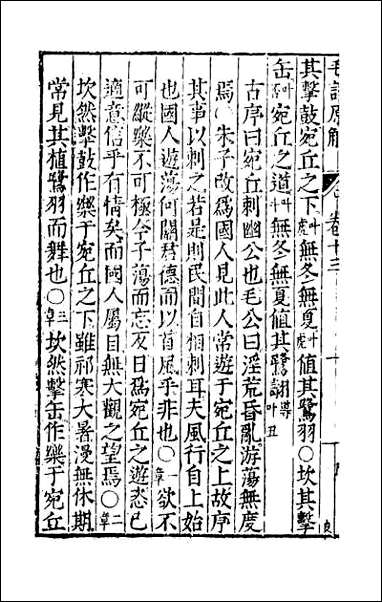 毛詩原解 卷十三
其擊鼓宛丘之下叶虎無冬無夏叶虎值其鷺羽○坎其擊
缶叶宛丘之道叶無冬無夏值其鷺翿導叶丑
古序曰宛丘刺幽公也毛公曰淫荒昏亂游蕩無度
焉○朱子改爲國人見此人常遊于宛丘之上故序
其事以刺之若是則民間自相刺耳夫風行自上始
也國人遊蕩何關君德而以首風乎非也○一章欲不
可縱樂不可極今子蕩而忘反日爲宛丘之遊恣已
適意信乎有情矣而國人屬目無大觀之望焉○二章
坎然擊鼓作樂于宛丘之下雖祁寒大暑漫無休期
常見其植鷺羽而舞也○三章坎然擊缶作樂于宛丘